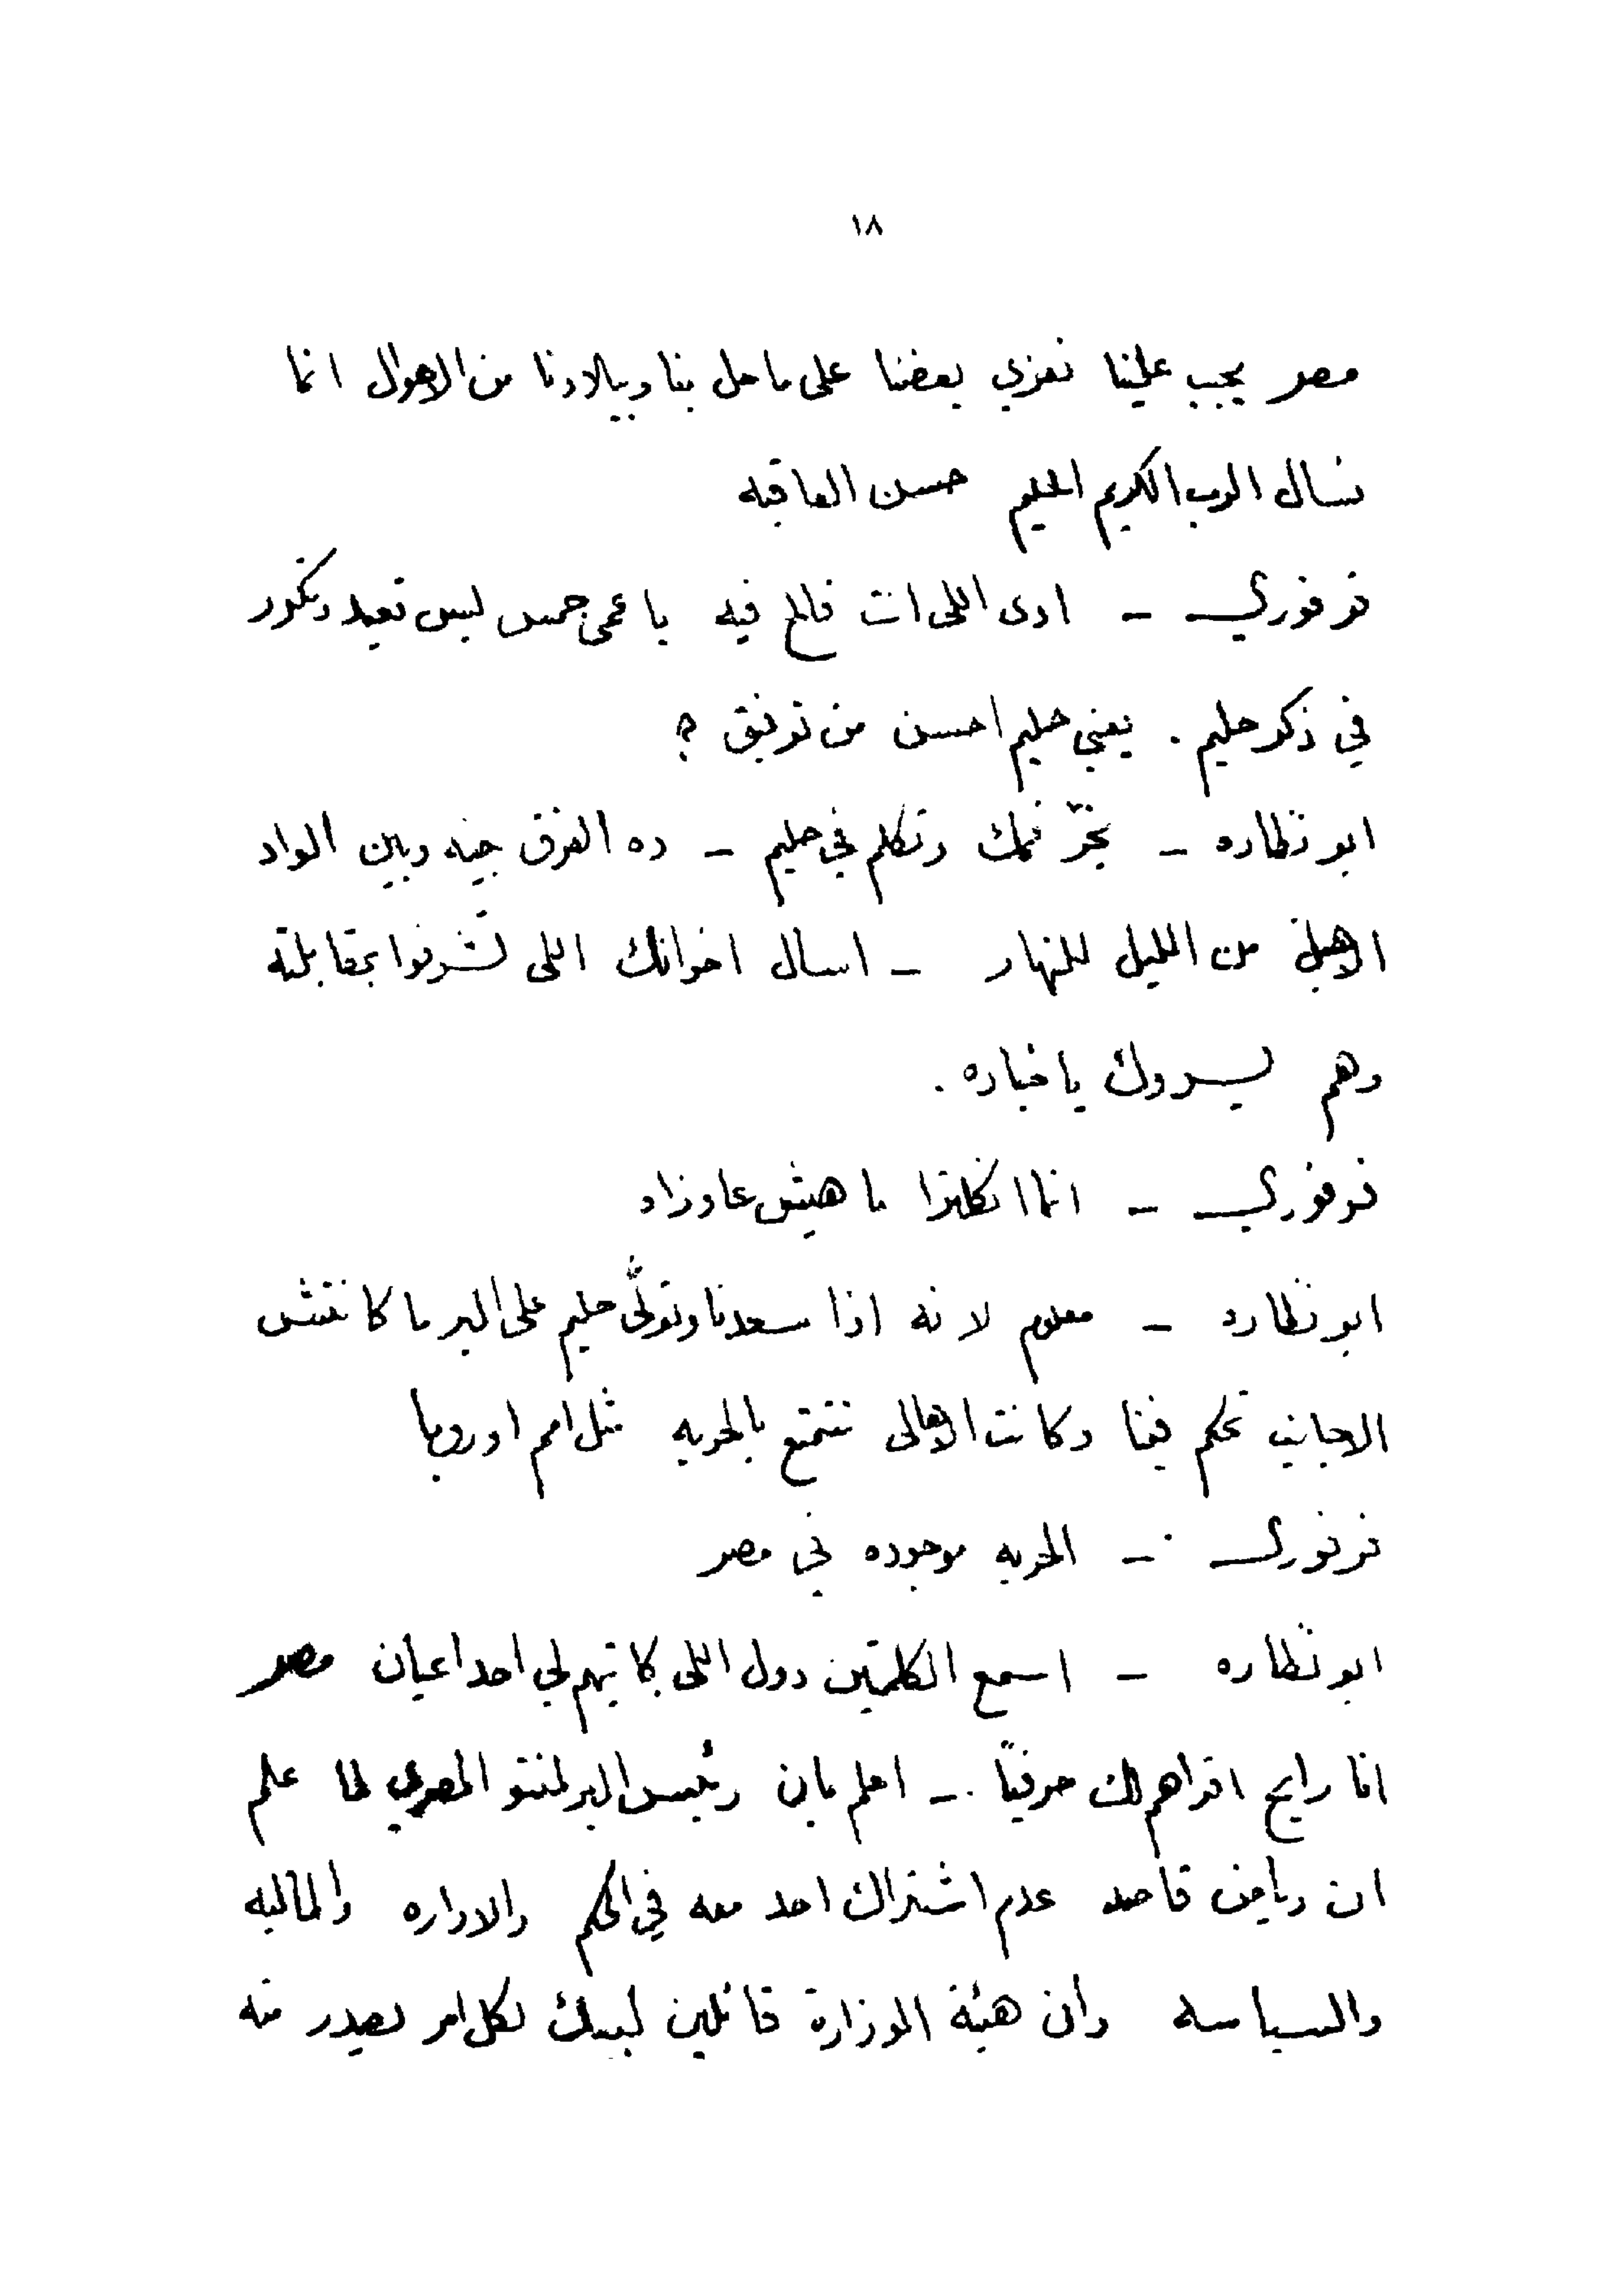 ١٨
مصر يجب علينا نعزي بعضنا على ما حل بنا وببلادنا من الاهوال انما
نسال الرب الكريم الحليم حسن العاقبه
فرفوري – ادى اللى انت فالح فيه يا عمى جمس ليس تعيد وتكرر
في ذكر حليم . يعنى حليم احسن من توفيق ؟
ابو نظاره – بخّر فمك وتكلم في حليم – ده الفرق بينه وبين الواد
الاهبل من الليل للنهار – اسال اخوانك اللى تشرفوا بمقابلته
وهم يسروك باخباره .
فرفوري – انما انكلترا ما هيش عاوزاه
ابو نظاره – معلوم لانه اذا سعدنا وتولَّى حليم على البر ما كانتش
الاجانب تحكم فينا وكانت الاهالى تتمتع بالحريه مثل امم اوروبا
فرفورى – الحريه موجوده في مصر
ابو نظاره – اسمع الكلمتين دول اللى كاتبهم لي احد اعيان مصر
انا رايح اقراهم لك حرفياً – اعلم بان رئيس البرلمنتو المصري لما علم
ان رياض قاصد عدم اشتراك احد معه في الحكم والاداره والماليه
والسياسه وان هيئة الوزارة قائلين لبيك لكل امر يصدر منه